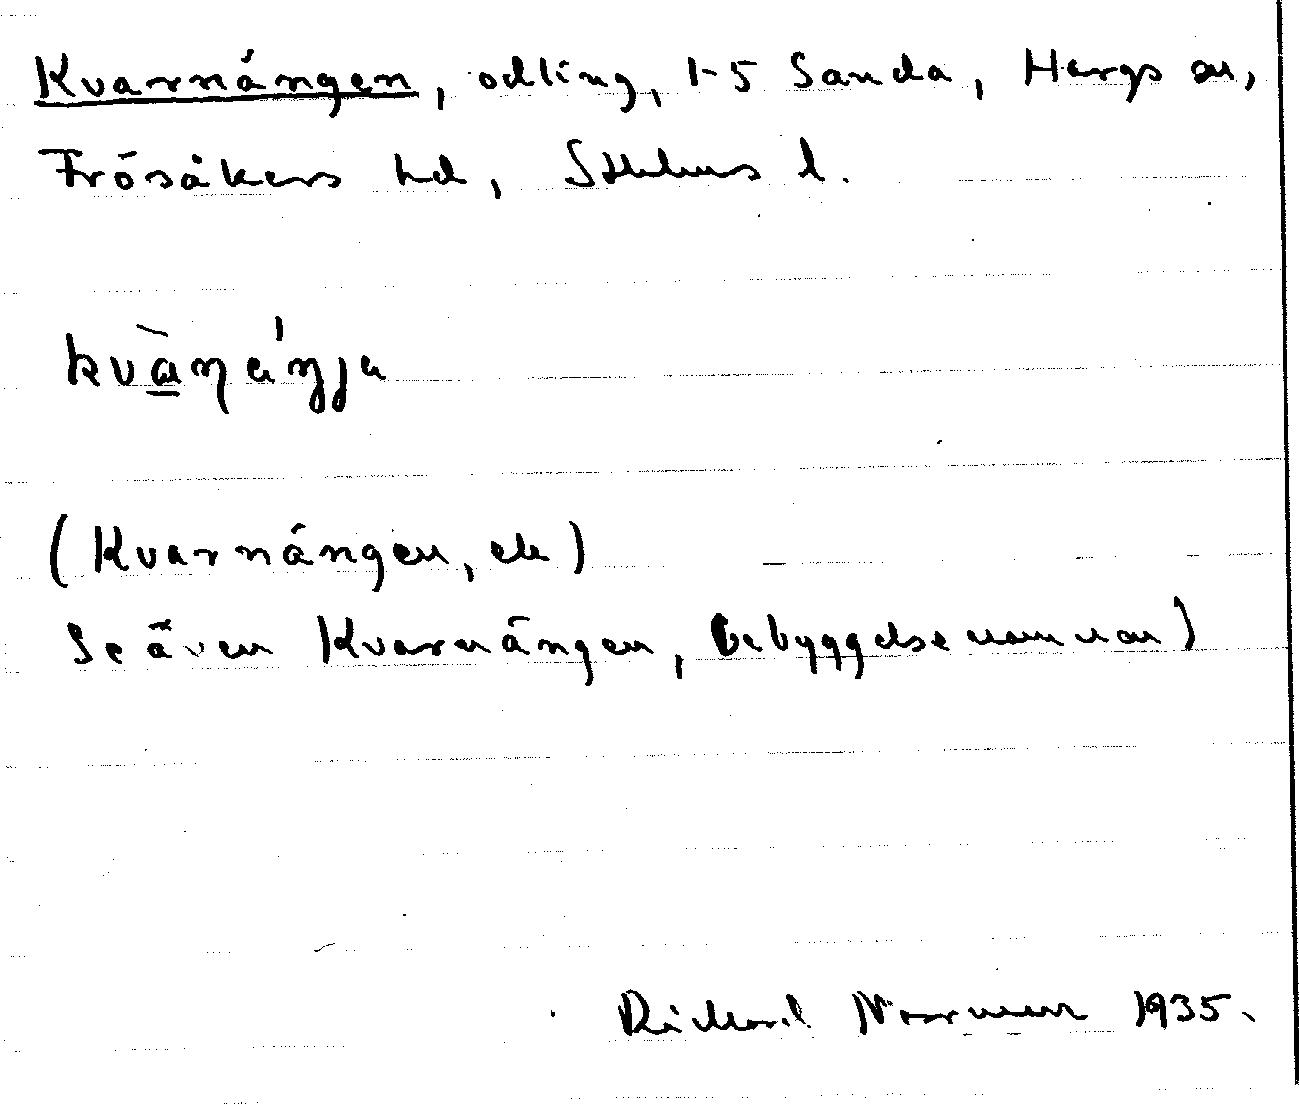 Kvarnängen, odling, 1-5 Sanda, Hargs sn,
Frösåkers hd, Sthlms l.
kvàɳáŋja
(Kvarnängen, ek)
Se även Kvarnängen, bebyggelsenamn)
Richard Norrman 1935.